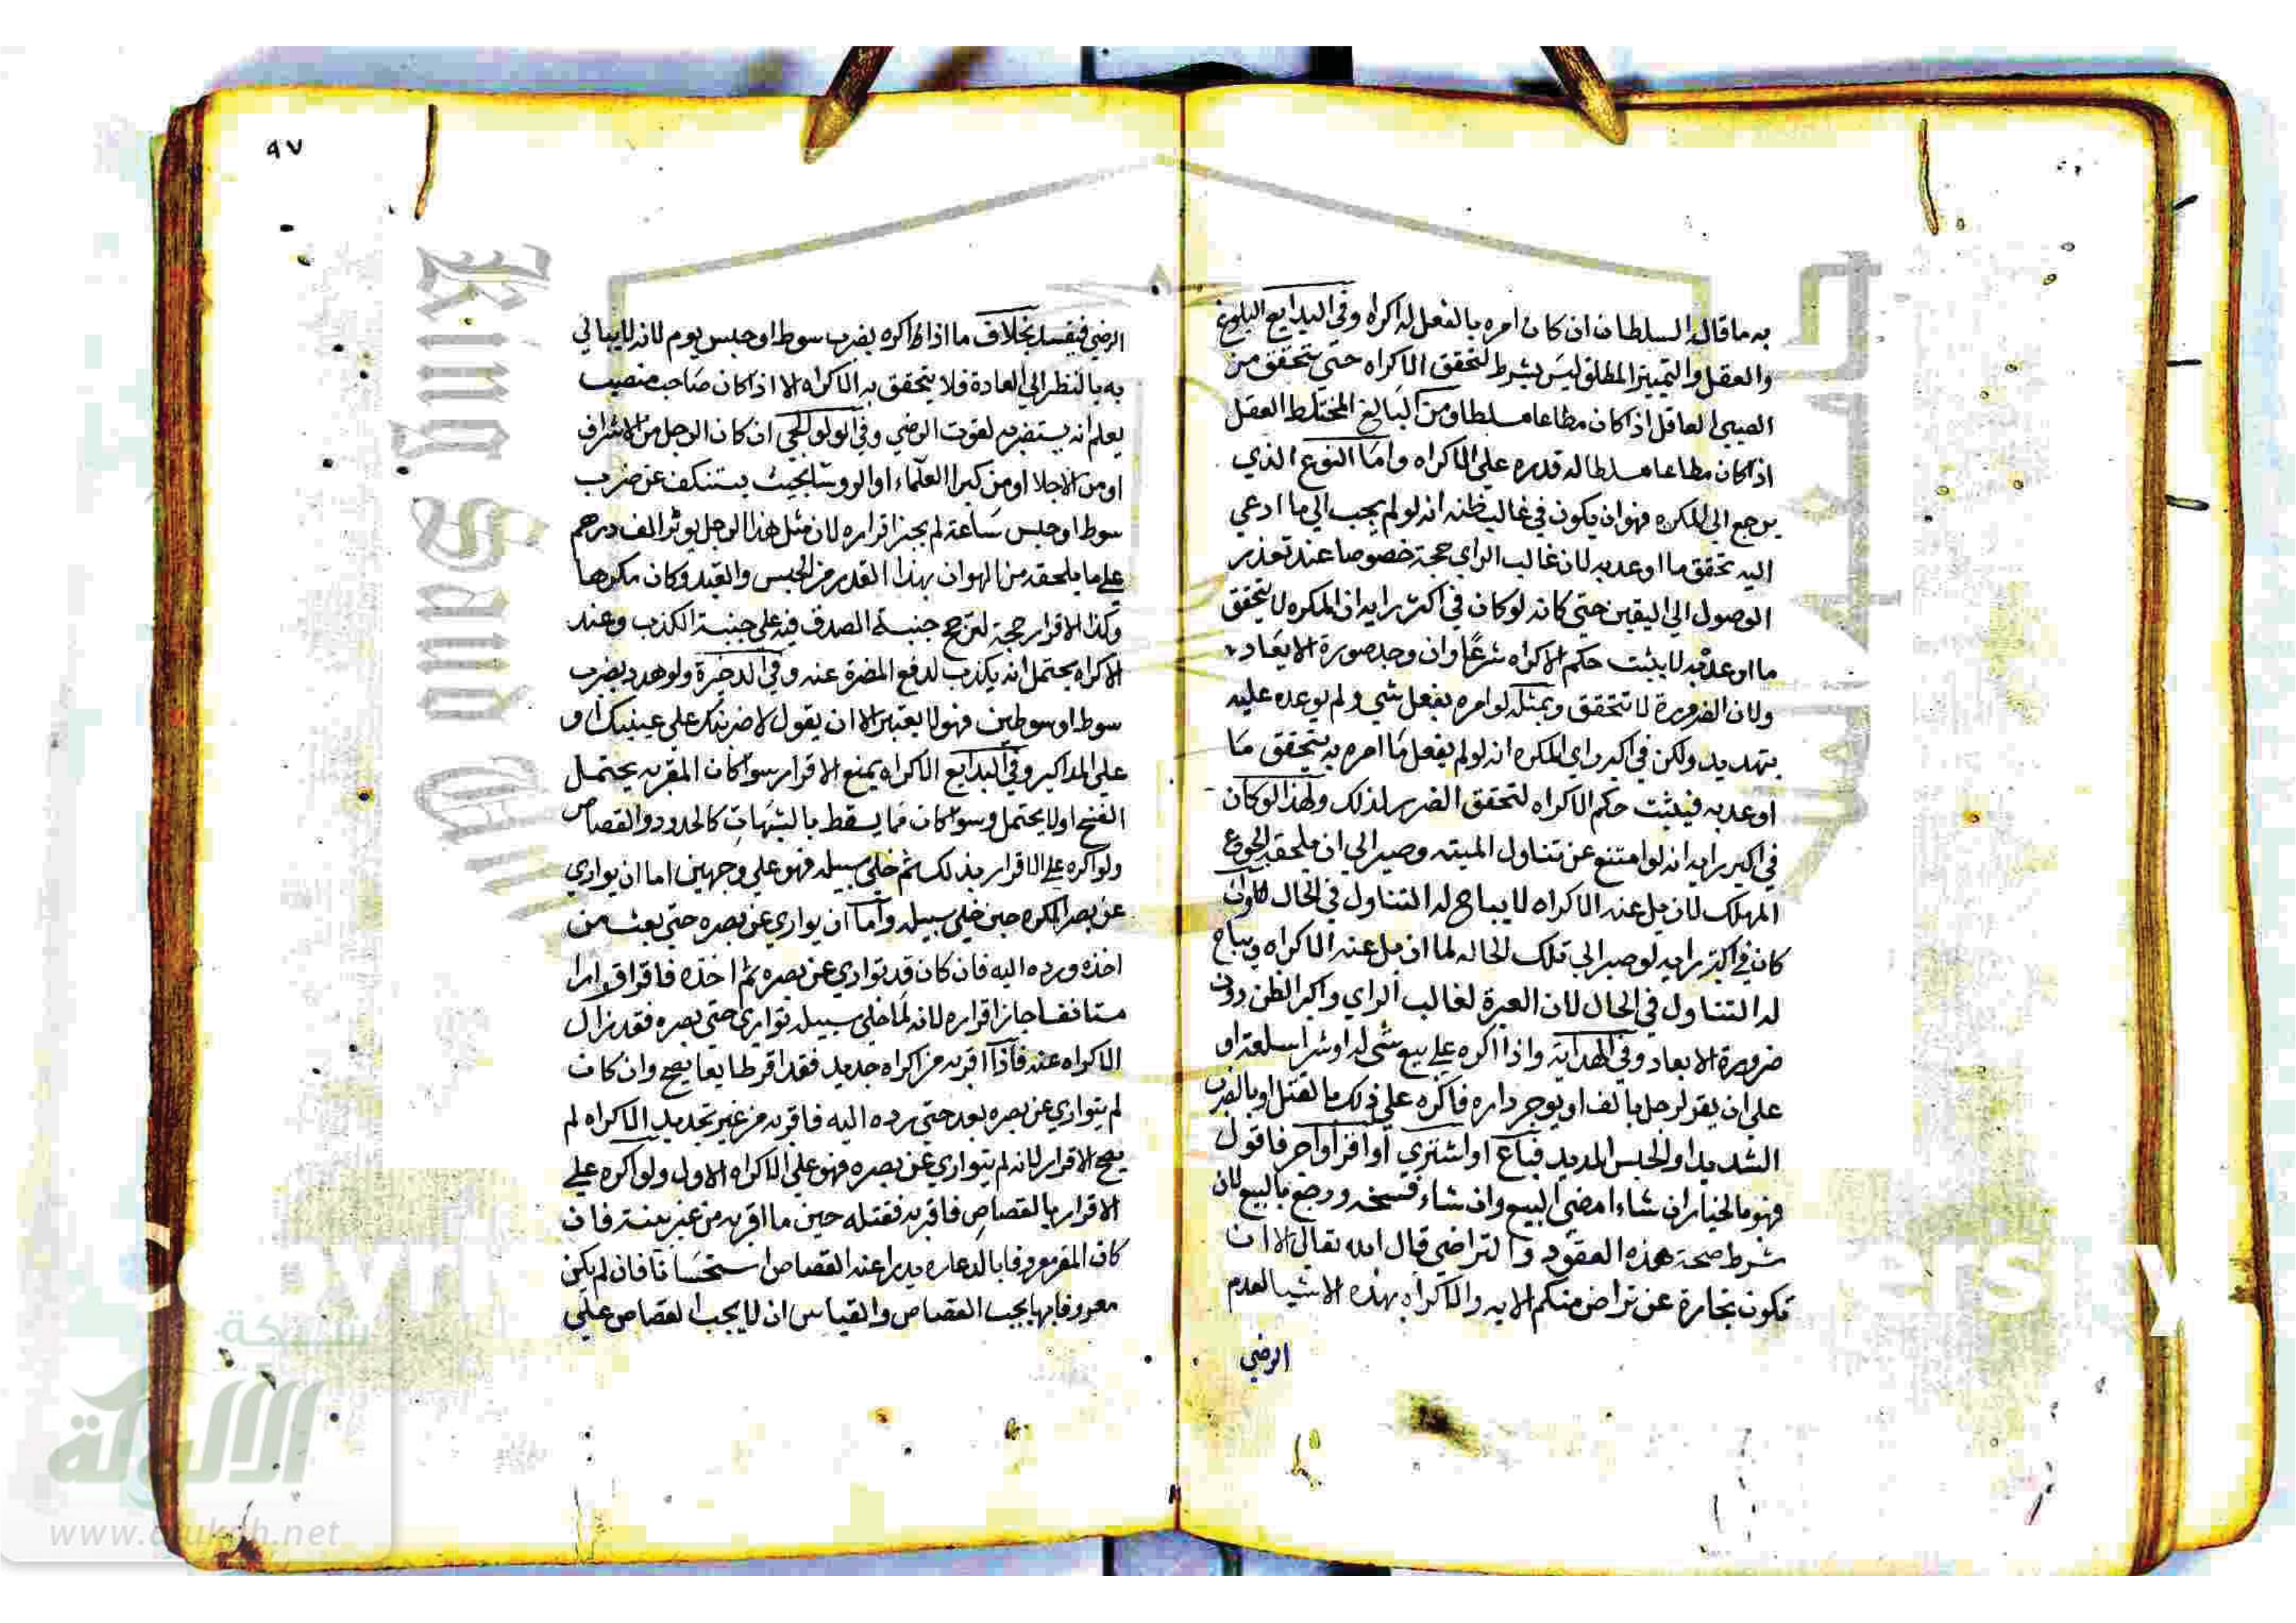 به ما قال السلطان ان كان امره بالفعل له اكراه وفي البدايع البلوغ
والعقل والتمييز المطلق ليس بشرط لتحقق الاكراه حتي يتحقق من
الصبي العاقل اذا كان مطاعا مسلطا ومن البالغ المختلط العقل
اذا كان مطاعا مسلطا له قدره علي الاكراه واما النوع الذي
يرجع الي المكره فهو ان يكون في غالب ظنه انه لو لم يجب الي ما ادعي
اليه تحقق ما اوعد به لان غالب الراي حجة خصوصا عند تعذر
الوصول الي اليقين حتي كانه لو كان في اكثر رايه ان المكره لا يتحقق
ما اوعد به لا يثبت حكم الاكراه شرعا وان وجد صورة الايعاد
ولان الضرورة لا تتحقق وبمثله لو امره بفعل شي ولم يوعده عليه
بتهديد ولكن في اكبر راي المكره انه لو لم يفعل ما امره به يتحقق ما
اوعد به فيثبت حكم الاكراه لتحقق الضرر لذلك ولهذا لو كان
في اكبر رايه انه لو امتنع عن تناول الميته وصبر الي ان يلحقه الجوع
المهلك لازيل عنه الاكراه لا يباح له التناول في الحال وان
كان في اكثر رايه لو صبر الي تلك الحاله لما ازيل عنه الاكراه ويباح
له التناول في الحال لان العبرة لغالب الراي واكبر الظن دون
ضرورة الابعاد وفي الهداية واذا اكره علي بيع شي له او شرا سلعة او
علي ان يقر لرجل بالف او يوجر داره فاكره علي ذلك بالقتل او بالضرب
الشديد او الحبس المديد فباع او اشتري او اقر او اجر فاقول
فهو بالخيار ان شاء امضي البيع وان شاء فسخه ورجع بالبيع لان
شرط صحة هذه العقود والتراضي قال الله تعالي الا ان
تكون تجارة عن تراض منكم الايه والاكراه بهذه الاشيا لعدم
الرضي
٩٧
الرضي فيفسد بخلاف ما اذا اكره بضرب سوط او حبس يوم لانه لا يبالي
به بالنظر الي العادة فلا يتحقق به الاكراه الا اذا كان صاحب منصب
يعلم انه يستضر به لفوت الرضي وفي الولوالجي ان كان الرجل من الاشراف
او من الاجلا او من كبرا العلماء او الروسا بحيث يستنكف عن ضرب
سوط او حبس ساعة لم يجز اقراره لان مثل هذا الرجل يوثر الف درهم
علي ما يلحقه من الهوان بهذا القدر من الحبس والقيد وكان مكرها
وكذا الاقرار حجة لترجح جنبة الصدق فيه علي جنبة الكذب وعند
الاكراه يحتمل انه يكذب لدفع المضرة عنه وفي الدخيرة ولو هدد بضرب
سوط او سوطين فهو لا يعتبر الا ان يقول لاضربنك علي عينيك او
علي المذاكير وفي البدايع الاكراه يمنع الاقرار سوا كان المقر به يحتمل
الفسخ او لا يحتمل وسوا كان مما يسقط بالشبهات كالحدود والقصاص
ولو اكره علي الاقرار بذلك ثم خلي سبيله فهو علي وجهين اما ان يواري
عن بصر المكره حين خلي سبيله واما ان يواري عن بصره حتي بعث من
اخذه ورده اليه فان كان قد تواري عن بصره ثم اخذه فاقر اقرارا
مستانفا جاز اقراره لانه لما خلي سبيله تواري حتي بصره فقد زال
الاكراه عنه فاذا اقر به من اكراه جديد فقد اقر طايعا يصح وان كان
لم يتواري عن بصره بعد حتي رده اليه فاقر به من غير تجديد الاكراه لم
يصح الاقرار لانه لم يتواري عن بصره فهو علي الاكراه الاول ولو اكره علي
الاقرار بالقصاص فاقر به فقتله حين ما اقر به من غير بينة فان
كان المقر معروفا بالدعاره يدرا عنه القصاص استحسانا فان لم يكن
معروفا بها يجب القصاص والقياس ان لا يجب القصاص علي
شبكة
الألوكة
www.alukah.net